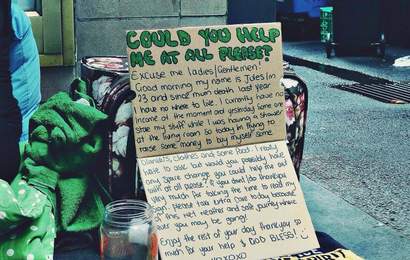 COULD YOU HELP
ME AT ALL PLEASE?
Excuse me ladies/Gentlemen!
Good morning my name is Jules Im
23 and since mum death last year
I have no where to live. I currently have no
income at the moment and yesterday some one
stole my stuff while I was having a shower
at the living room so today im trying to
raise some money to buy myself some
blankets, clothes and some food. I really
hate to ask but would you possibly have
any spare change you could help me out
with at all please? if you dont like thankyou
very much for taking the time to read my
sign. please take extra care today because
of this wet weather and safe journey where
ever you may be going!
Enjoy the rest of your day thankyou so
much for your help & GOD BLESS!
xoxoxo